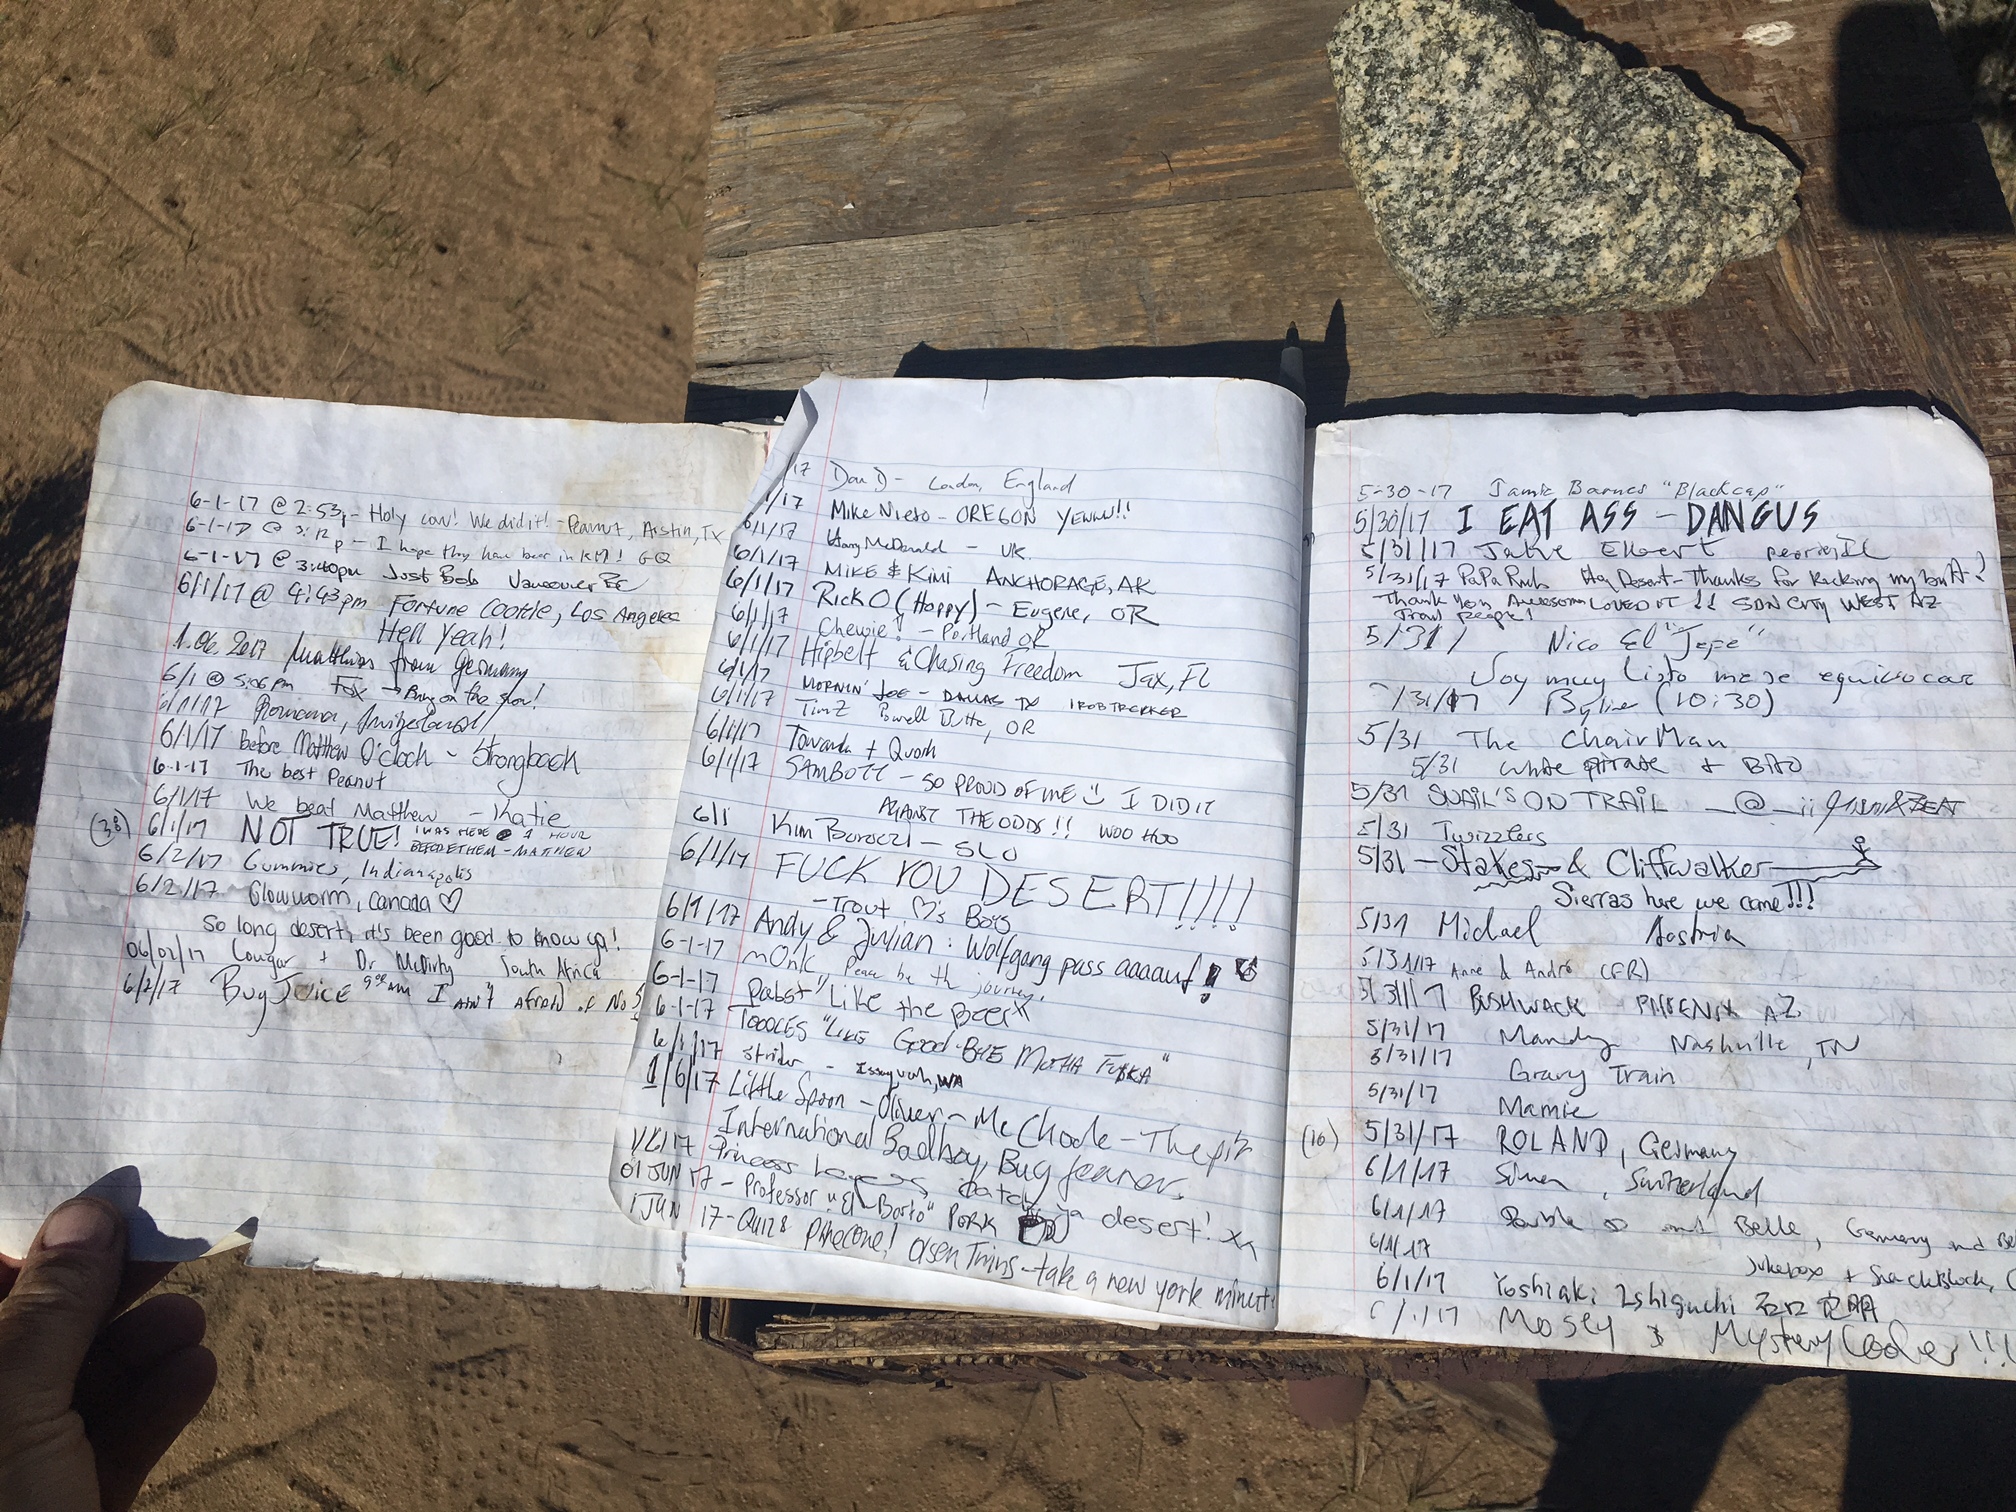 6-1-17 @ 2:53p - Holy cow! We did it! - Peanut, Austin, TX
6-1-17 @ 3:12p - I hope they have beer in KM! GQ
6-1-17 @ 3:40pm Just Bob Vancouver BC
6/1/17 @ 4:43pm Fortune Cookie, Los Angeles
Hell Yeah!
1.06.2017 Matthias from Germany
6/1 @ 5:06pm Fox → Bring on the snow!
6/1/17 Romana, Switzerland
6/1/17 Before Matthew O'clock - Strongback
6-1-17 The best Peanut
6/1/17 We beat Matthew - Katie
(38) 6/1/17 NOT TRUE! I WAS HERE @ 1 HOUR
BEFORE THEM - MATTHEW
6/2/17 Gummies, Indianapolis
6/2/17 Glowworm, Canada ♡
So long desert, it's been good to know ya!
06/02/17 Cougar + Dr McDirty South Africa
6/2/17 Bug Juice 9:00 AM I AIN'T Afraid of No
/17 Dan D - London, England
1/17 Mike Nieto - OREGON YEWW!!
6/1/17 Harry McDonald - UK
6/1/17 MIKE & KIMI ANCHORAGE, AK
6/1/17 Rick O (Hoppy) - Eugene, OR
6/1/17 Chewie! - Portland OR
6/1/17 Hipbelt & Chasing Freedom Jax, FL
6/1/17 MORNIN' JOE - DALLAS TX IROBTREKKER
6/1/17 Tim Z Powell Butte, OR
6/1/17 Towanda + Quoth
6/1/17 SAMBOTT - SO PROUD OF ME I DID IT
AGAINST THE ODDS!! WOO HOO
6/1 Kim - SLO
6/1/17 FUCK YOU DESERT!!!!
- Trout ♡'s Boys
6/1/17 Andy & Julian: Wolfgang pass aaaauf!
6-1-17 mOnk, Peace be th journey.
6-1-17 Pabst "Like the Beer"
6-1-17 TOODLES "LIKE GOOD-BYE MOTHA FUKKA"
6/1/17 Strider - Issaquah, WA
1/6/17 Little Spoon - Oliver - McChode - The pit
International Badboy, Bug fearer.
1/6/17 Princess catch ya desert! xx
01 JUN 17 - Professor "El Barto" PORK
1 JUN 17 - Quiz & Pinecone! Olsen Twins - take a new york minute
5-30-17 Jamie Barnes "Blackcap"
5/30/17 I EAT ASS - DANGUS
5/31/17 Jake Elbert peoria, IL
5/31/17 PaPa Rub Hey Desert - Thanks for kicking my butt!
Thank you Awesome LOVED IT !! SUN CITY WEST AZ
Trail People!
5/31/ Nico El "Jefe"
Soy muy listo me se equivocar
/31/17 Byline (10:30)
5/31 The ChairMan
5/31 white pirate + BITO
5/31 SNAIL'S ON TRAIL _@_ii
5/31 Twizzlers
5/31 - Stakes & Cliffwalker
Sierras here we come!!!
5/31 Michael Austria
5/31/17 Anne & André (FR)
5/31/17 BUSHWACK - PHOENIX AZ
5/31/17 Mandy Nashville, TN
5/31/17 Gravy Train
5/31/17 Mamie
(16) 5/31/17 ROLAND, Germany
6/1/17 Simon, Switzerland
6/1/17 Double and Belle, Germany and Be
6/1/17 Jukebox + SnackBlock,
6/1/17 Yoshiaki Ishiguchi
/1/17 Mosey & Mystery Cooler!!!